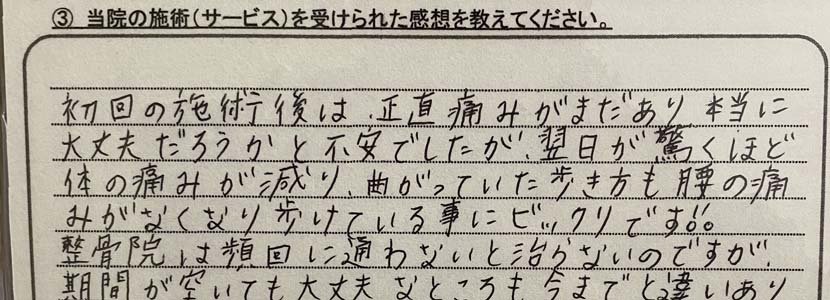 ③ 当院の施術(サービス)を受けられた感想を教えてください。
初回の施術後は、正直痛みがまだあり本当に
大丈夫だろうかと不安でしたが、翌日が驚くほど
体の痛みが減り、曲がっていた歩き方も腰の痛
みがなくなり歩けている事にビックリです!!
整骨院は頻回に通わないと治らないのですが、
期間が空いても大丈夫なところも今までと違いあり